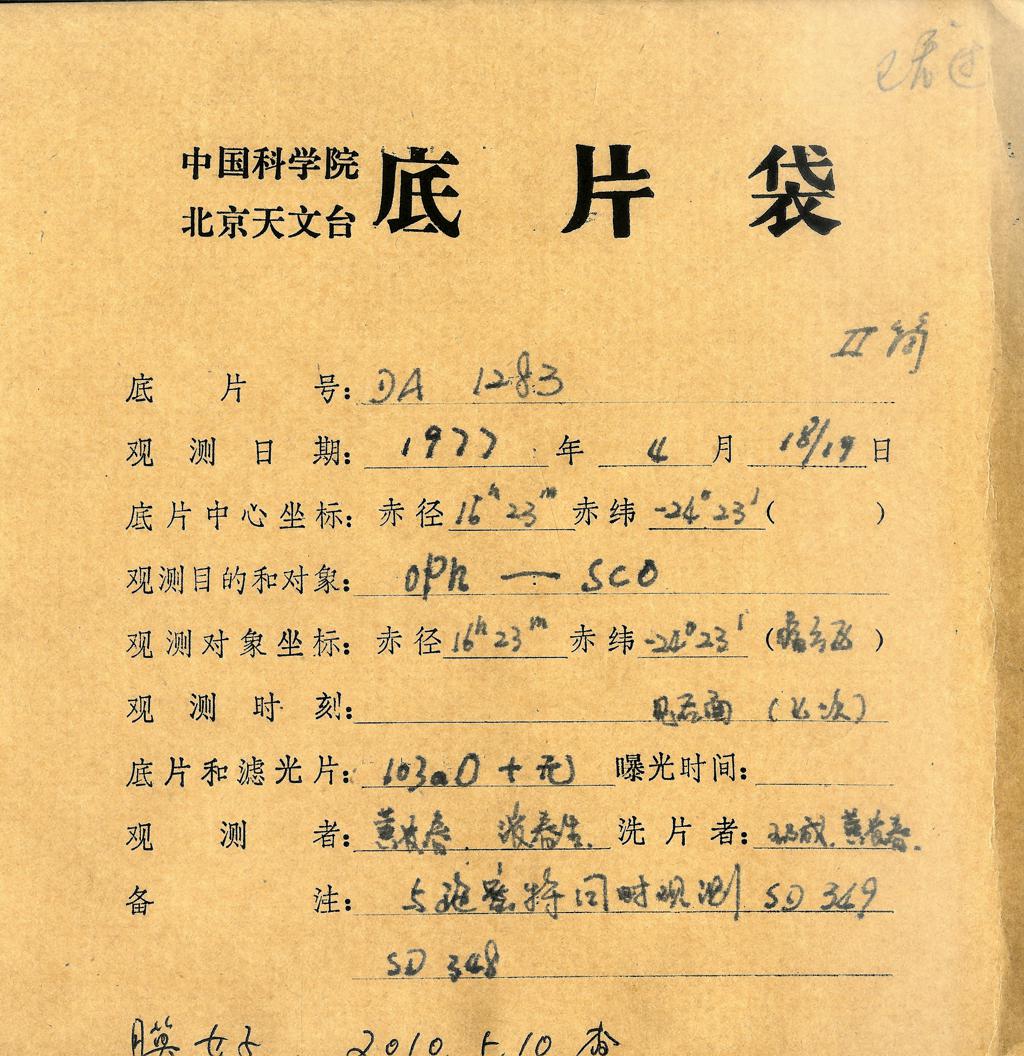 已看过
中国科学院
北京天文台
底片袋
II 筒
底片号: DA 1283
观测日期: 1977 年 4 月 18/19 日
底片中心坐标: 赤径 16h 23m 赤纬 -24° 23′ ( )
观测目的和对象: oph — sco
观测对象坐标: 赤径 16h 23m 赤纬 -24° 23′ ( )
观测时刻: 见后面 (七次)
底片和滤光片: 103aO + 无 曝光时间:
观测者: 黄 春. 洗片者: 成. 黄 春.
备注: 与施密特同时观测 SD 349
SD 348
膜女子 2010.5.10 查